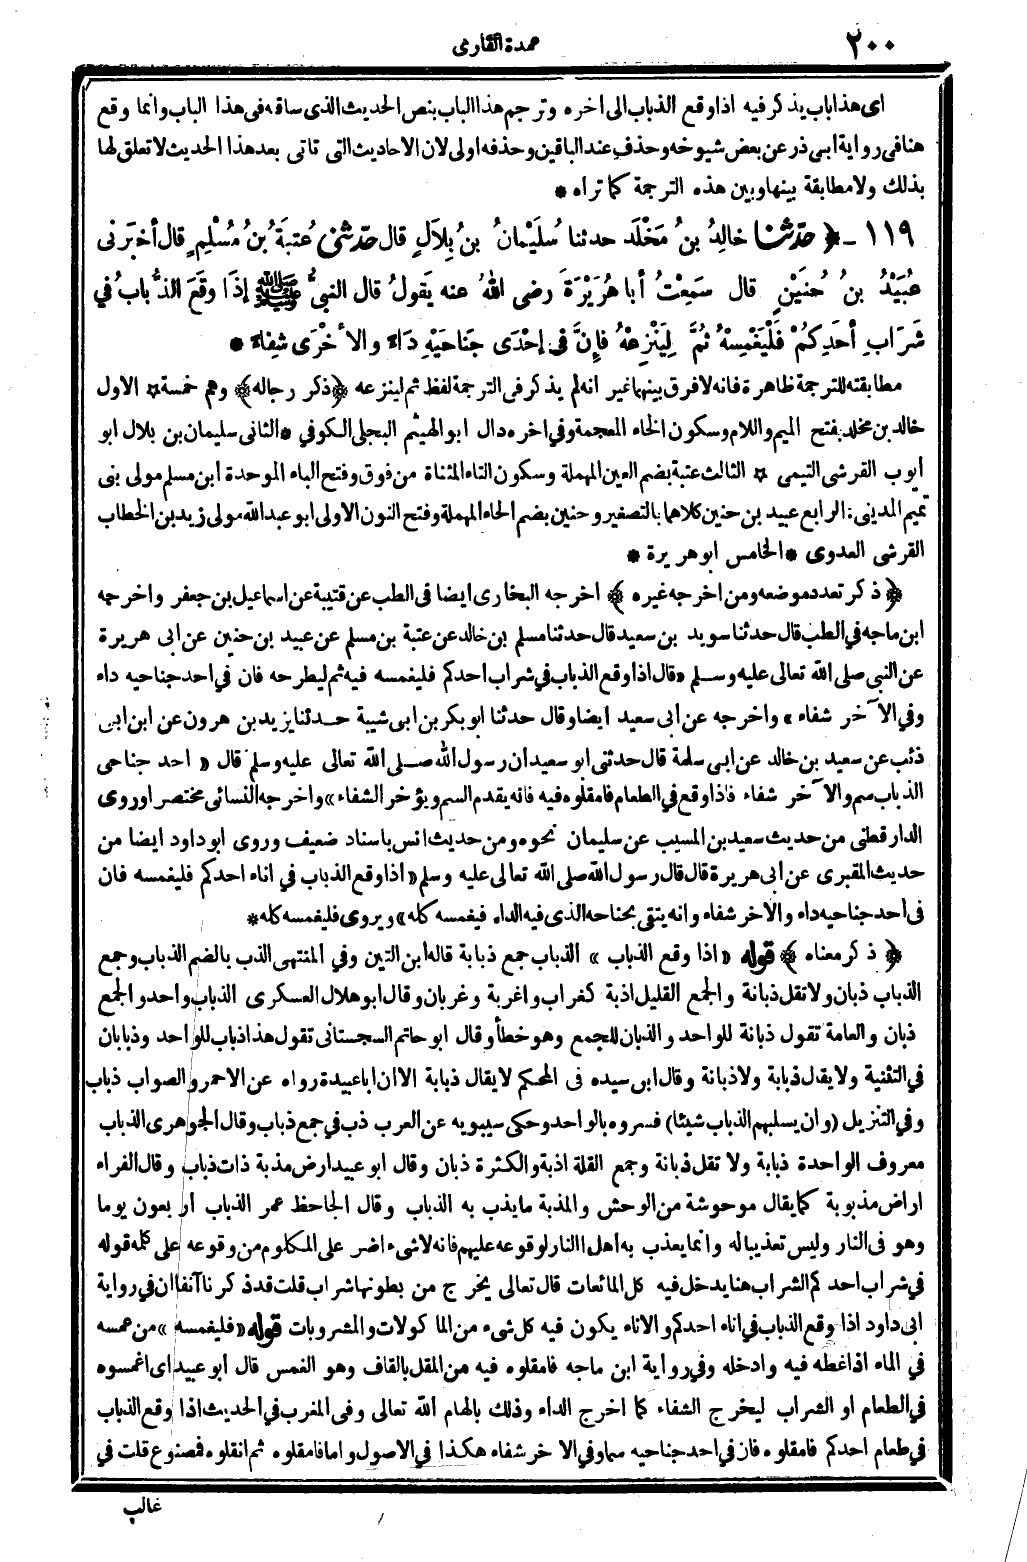 ٢٠٠
عمدة القارى
اى هذا باب يذكر فيه اذا وقع الذباب الى اخره وترجم هذا الباب بنص الحديث الذى ساقه فى هذا الباب وانما وقع
هنا فى رواية ابى ذر عن بعض شيوخه وحذف عند الباقين وحذفه اولى لان الاحاديث التى تاتى بعد هذا الحديث لا تعلق لها
بذلك ولا مطابقة بينها وبين هذه الترجمة كما تراه *
١١٩ - ﴿ حدّثنا خالِدُ بنُ مَخْلَد حدثنا سُلَيْمانُ بنُ بِلاَلٍ قال حدّثني عُتبَةُ بنُ مُسْلِمٍ قال أخبَرنى
عُبَيْدُ بنُ حُنَيْنٍ قال سَمِعْتُ أبا هُرَيْرَةَ رضى اللهُ عنه يَقولُ قال النبىُّ ﷺ إذَا وقَعَ الذُّبابُ فى
شَرَابِ أحَدِكُمْ فَلْيَغْمِسْهُ ثُمَّ لِيَنْزِعْهُ فإِنَّ فى إحْدَى جَناحَيْهِ دَاءً والأُخْرَى شِفاءً *
مطابقته للترجمة ظاهرة فانه لا فرق بينهما غير انه لم يذكر فى الترجمة لفظ ثم لينزعه ﴿ذكر رجاله﴾ وهم خمسة * الاول
خالد بن مخلد بفتح الميم واللام وسكون الخاء المعجمة وفى اخره دال ابو الهيثم البجلى الكوفي * الثانى سليمان بن بلال ابو
أيوب القرشى التيمى * الثالث عتبة بضم العين المهملة وسكون التاء المثناة من فوق وفتح الباء الموحدة أبن مسلم مولى بنى
تميم المدينى : الرابع عبيد بن حنين كلاهما بالتصغير وحنين بضم الحاء المهملة وفتح النون الاولى ابو عبد الله مولى زيد بن الخطاب
القرشى العدوى * الخامس ابو هريرة *
﴿ ذكر تعدد موضعه ومن اخرجه غيره ﴾ اخرجه البخارى ايضا فى الطب عن قتيبة عن اسماعيل بن جعفر واخرجه
ابن ماجه في الطب قال حدثنا سويد بن سعيد قال حدثنا مسلم بن خالد عن عتبة بن مسلم عن عبيد بن حنين عن ابى هريرة
عن النبى صلى الله تعالى عليه وسلم «قال اذا وقع الذباب في شراب احدكم فليغمسه فيه ثم ليطرحه فان في احد جناحيه داء
وفي الآخر شفاء» واخرجه عن ابى سعيد ايضا وقال حدثنا ابو بكر بن ابى شيبة حدثنا يزيد بن هرون عن ابن ابى
ذئب عن سعيد بن خالد عن ابى سلمة قال حدثنى ابو سعيد ان رسول الله صلى الله تعالى عليه وسلم قال « احد جناحى
الذباب سم والآخر شفاء فاذا وقع في الطعام فامقلوه فيه فانه يقدم السم ويؤخر الشفاء» واخرجه النسائى مختصرا وروى
الدارقطنى من حديث سعيد بن المسيب عن سليمان نحوه ومن حديث انس باسناد ضعيف وروى ابو داود ايضا من
حديث المقبرى عن ابى هريرة قال قال رسول الله صلى الله تعالى عليه وسلم «اذا وقع الذباب في اناء احدكم فليغمسه فان
فى احد جناحيه داء والاخر شفاء وانه يتقى بجناحه الذى فيه الداء فيغمسه كله» ويروى فليغمسه كله *
﴿ ذكر معناه ﴾ قوله «اذا وقع الذباب » الذباب جمع ذبابة قاله ابن التين وفي المنتهى الذب بالضم الذباب وجمع
الذباب ذبان ولا تقل ذبانة والجمع القليل اذبة كغراب واغربة وغربان وقال ابو هلال العسكرى الذباب واحد والجمع
ذبان والعامة تقول ذبانة للواحد والذبان للجمع وهو خطأ وقال ابو حاتم السجستانى تقول هذا ذباب للواحد وذبابان
في التثنية ولا يقل ذبابة ولا ذبانة وقال ابن سيده فى المحكم لا يقال ذبابة الا ان ابا عبيدة رواه عن الاحمر والصواب ذباب
وفي التنزيل (وان يسلبهم الذباب شيئا) فسروه بالواحد وحكى سيبويه عن العرب ذب في جمع ذباب وقال الجوهرى الذباب
معروف الواحدة ذبابة ولا تقل ذبانة وجمع القلة اذبة والكثرة ذبان وقال ابو عبيد ارض مذبة ذات ذباب وقال الفراء
ارض مذبوبة كما يقال موحوشة من الوحش والمذبة ما يذب به الذباب وقال الجاحظ عمر الذباب اربعون يوما
وهو فى النار وليس تعذيبا له وانما يعذب به أهل النار لوقوعه عليهم فانه لا شىء اضر على المكلوم من وقوعه على كلمه قوله
في شراب احدكم الشراب هنا يدخل فيه كل المائعات قال تعالى يخرج من بطونها شراب قلت قد ذكرنا آنفا ان في رواية
ابى داود اذا وقع الذباب في اناء احدكم والاناء يكون فيه كل شىء من الماكولات والمشروبات قوله «فليغمسه » من غمسه
في الماء اذا غطه فيه وادخله وفي رواية ابن ماجه فامقلوه فيه من المقل بالقاف وهو الغمس قال أبو عبيد اى اغمسوه
في الطعام او الشراب ليخرج الشفاء كما اخرج الداء وذلك بالهام الله تعالى وفى المغرب في الحديث اذا وقع الذباب
في طعام احدكم فامقلوه فان في احد جناحيه سما وفي الاخر شفاء هكذا في الاصول واما فامقلوه ثم انقلوه فمصنوع قلت في
غالب